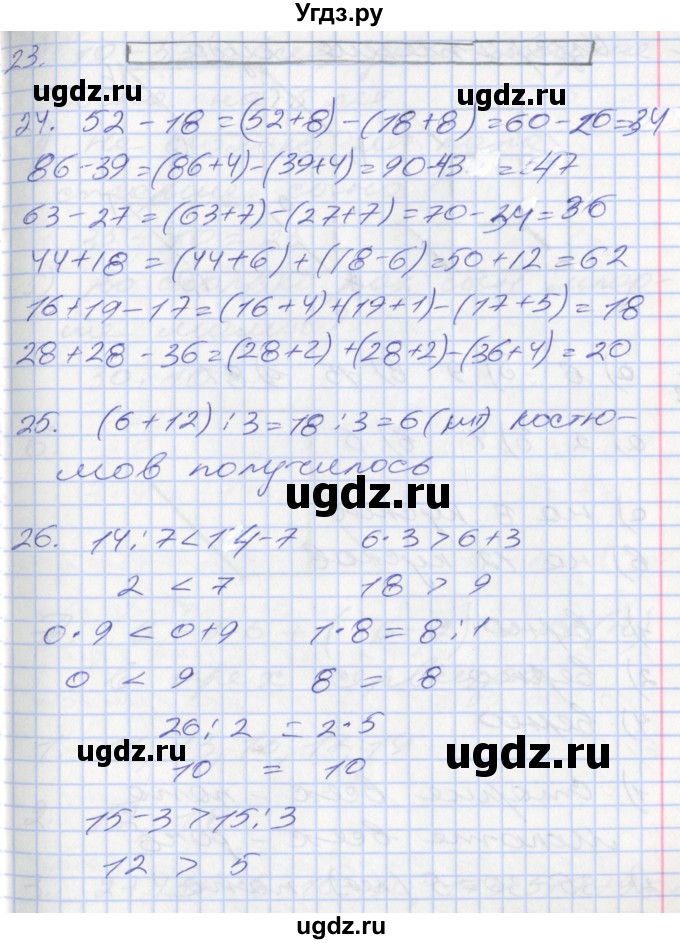 Угдз.ру
23.
ugdz.ru ugdz.ru
24. 52 - 18 = (52+8) - (18+8) = 60 - 26 = 34
86 - 39 = (86+4) - (39+4) = 90-43 = 47
63 - 27 = (63+7) - (27+7) = 70 - 34 = 36
44 + 18 = (44+6) + (18-6) = 50 + 12 = 62
16 + 19 - 17 = (16+4)+(19+1)-(17+5) = 18
28 + 28 - 36 = (28+2)+(28+2)-(36+4) = 20
25. (6+12) : 3 = 18 : 3 = 6 (шт) костю-
мов получилось
ugdz.ru
26. 14 : 7 < 14 - 7 6 · 3 > 6 + 3
2 < 7 18 > 9
0 · 9 < 0 + 9 1 · 8 = 8 : 1
0 < 9 8 = 8
20 : 2 = 2 · 5
ugdz.ru ugdz.ru
10 = 10
15 - 3 > 15 : 3
12 > 5
ugdz.ru